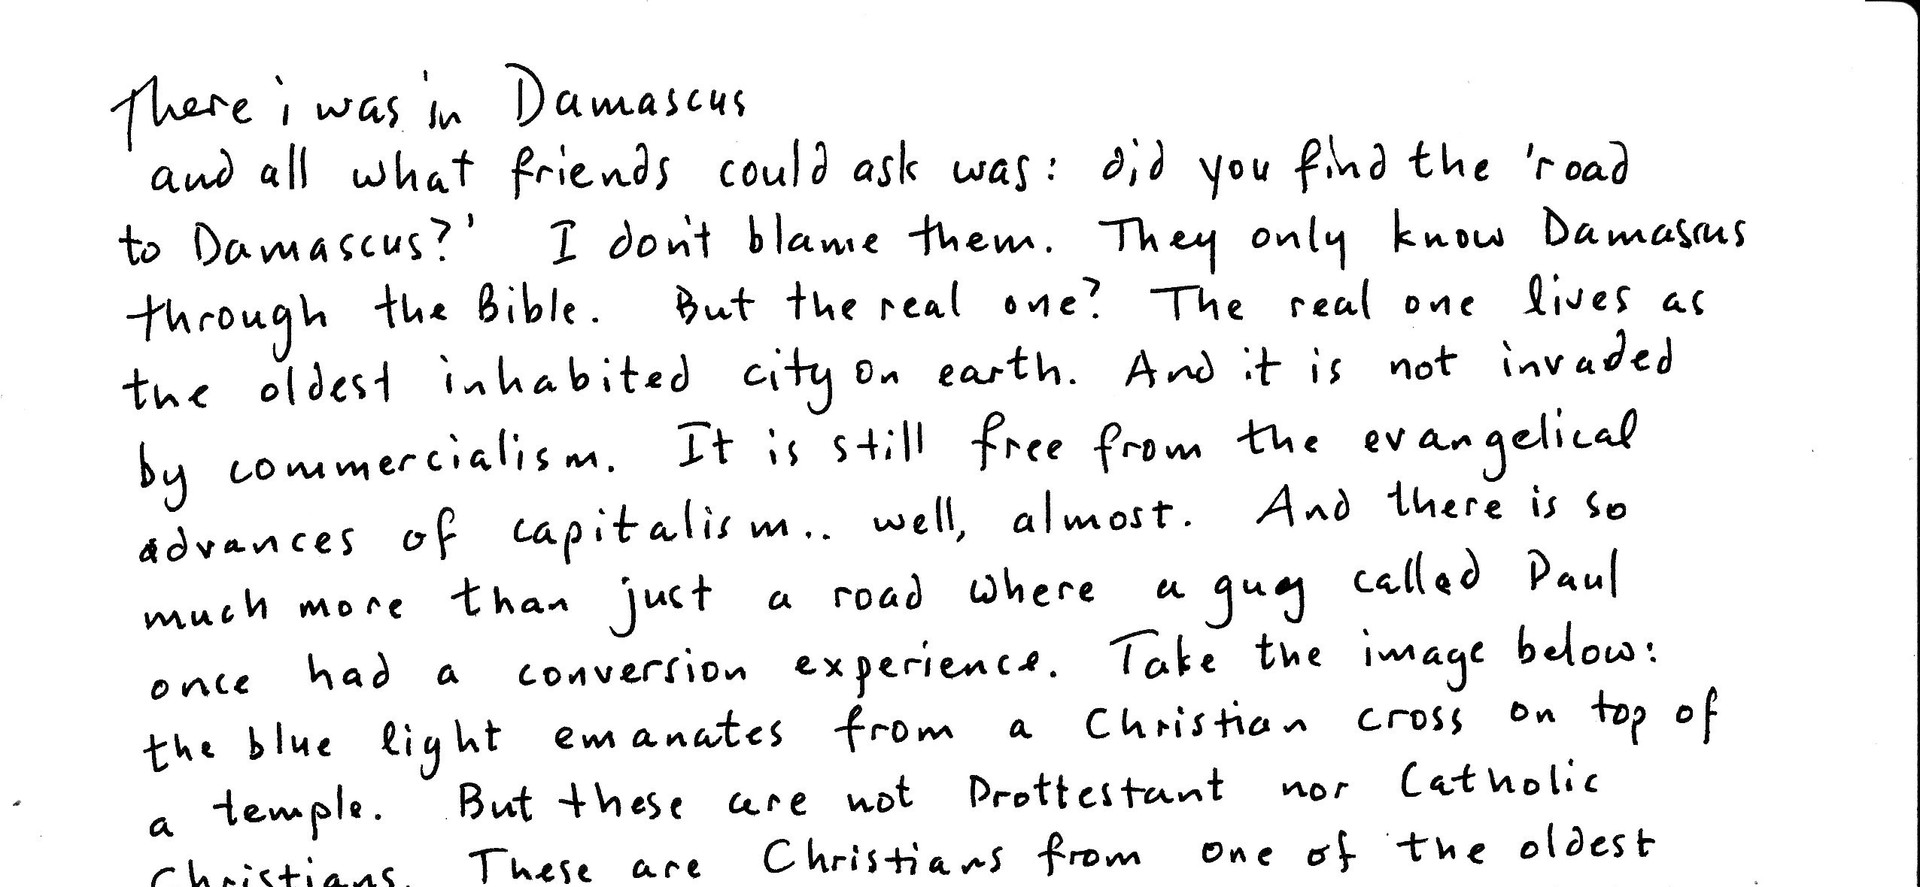 There i was in Damascus
and all what friends could ask was: did you find the 'road
to Damascus?' I don't blame them. They only know Damascus
through the Bible. But the real one? The real one lives as
the oldest inhabited city on earth. And it is not invaded
by commercialism. It is still free from the evangelical
advances of capitalism.. well, almost. And there is so
much more than just a road where a guy called Paul
once had a conversion experience. Take the image below:
the blue light emanates from a Christian cross on top of
a temple. But these are not Prottestant nor Catholic
Christians. These are Christians from one of the oldest